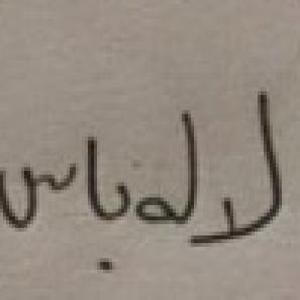 لا له باس